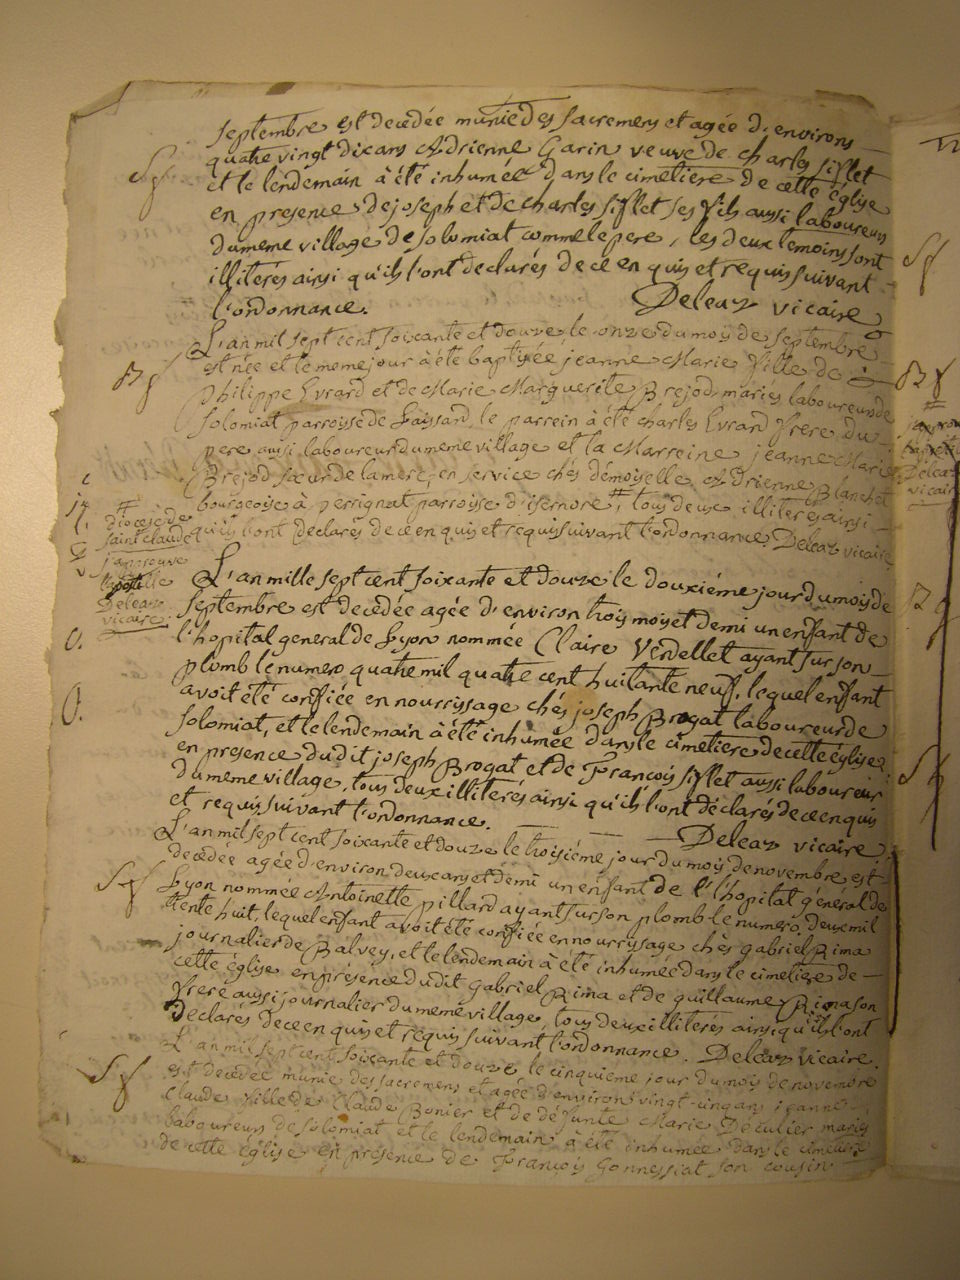 septembre est decedée munie des sacremens et agée d'environs
quatre vingt dix ans Adrienne Garin veuve de charles sifflet
et le lendemain à été inhumée dans le cimetiere de cette église
en presence de joseph et de charles sifflet ses fils aussi laboureurs
du meme village de solomiat comme le pere, les deux temoins sont
illiterés ainsi qu'ils l'ont declarés de ce enquis et requis suivant
l'ordonnance. Deleaz vicaire
L'an mil sept cent soixante et douze, le onze du mois de septembre
est née et le meme jour à été baptisée jeanne Marie fille de
philippe Evrard et de Marie Marguerite Brejod mariés laboureurs de
solomiat parroisse de Laissard, le parrein à été charles Evrard frere du
pere aussi laboureur du meme village et la Marreine jeanne Marie
Brejod sœur de la mere, en service chés démoiselle Adrienne Blanchet
bourgeoise à perrignat parroisse d'isernore #, tous deux illiterés ainsi
qu'ils l'ont déclarés de ce enquis et requis suivant l'ordonnance. Deleaz vicaire
#
diocèse de
saint claude
j'approuve
l'apostille
Deleaz
vicaire
L'an mille sept cent soixante et douze le douxiéme jour du mois de
septembre est decedée agée d'environ trois mois et demi un enfant de
l'hopital general de Lyon nommée Claire Verdellet ayant sur son
plomb le numero quatre mil quatre cent huitante neuf, lequel enfant
avoit été confiée en nourrissage chés joseph Brogat laboureur de
solomiat, et le lendemain à été inhumée dans le cimetiere de cette église
en presence dudit joseph Brogat et de François sifflet aussi laboureur
du meme village, tous deux illiterés ainsi qu'ils l'ont déclarés de ce enquis
et requis suivant l'ordonnance. Deleaz vicaire
L'an mil sept cent soixante et douze le troisiéme jour du mois de novembre est
decedée agée d'environ deux ans et demi un enfant de l'hopital général de
Lyon nommée Antoinette pillard ayant sur son plomb le numero, deux mil
trente huit, lequel enfant avoit été confiée en nourrissage chés gabriel Rima
journalier de Balvey, et le lendemain à été inhumée dans le cimetiere de
cette église en présence dudit gabriel Rima et de guillaume Rima son
frere aussi journalier du meme village, tous deux illiterés ainsi qu'ils l'ont
déclarés de ce enquis et requis suivant l'ordonnance. Deleaz vicaire.
L'an mil sept cent soixante et douze le cinquieme jour du mois de novembre
est decedée munie des sacremens et agée d'environ vingt cinq ans jeanne
Claude fille de Claude Bonier et de défunte Marie Déculier mariés
laboureurs de solomiat et le lendemain à été inhumée dans le cimetiere
de cette église en présence de François Gonnessiat son cousin